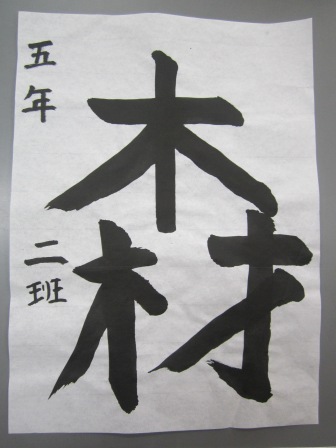 木材
五年 二班